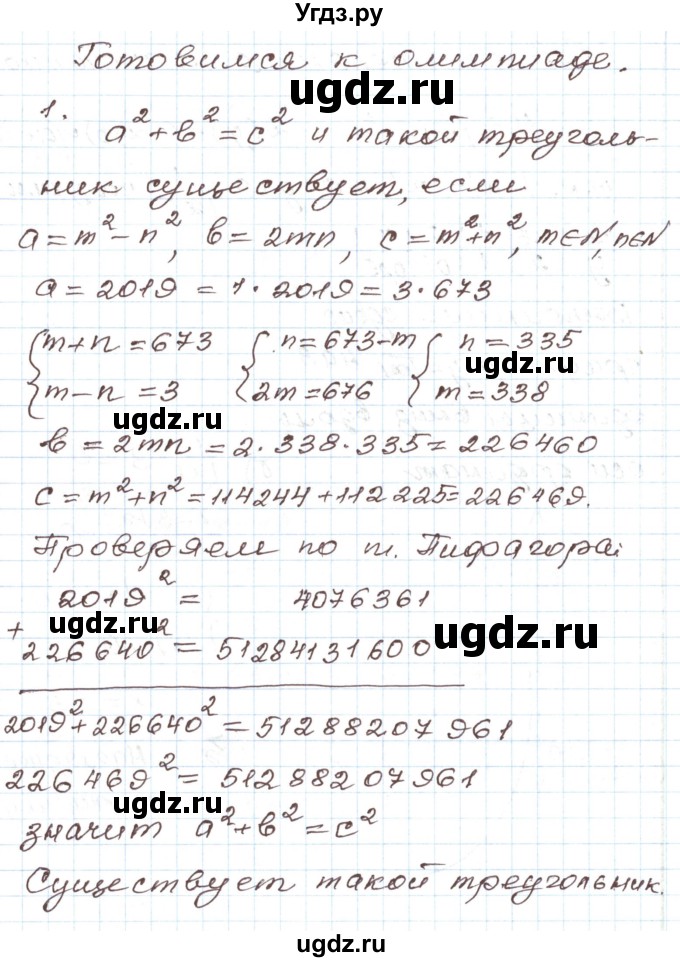 Угдз.ру
Готовимся к олимпиаде.
ugdz.ru
1. a² + b² = c² и такой треуголь-
ник существует, если
a = m² - n², b = 2mn, c = m² + n², m∈N, n∈N
ugdz.ru
a = 2019 = 1 · 2019 = 3 · 673
{m + n = 673 {n = 673 - m {n = 335
ugdz.ru
{m - n = 3 {2m = 676 {m = 338
ugdz.ru
b = 2mn = 2 · 338 · 335 = 226460
c = m² + n² = 114244 + 112225 = 226469.
Проверяем по т. Пифагора:
2019² = 4076361
ugdz.ru ugdz.ru
+ 226640² = 51284131600
2019² + 226640² = 51288207961
226469² = 51288207961
ugdz.ru
значит a² + b² = c²
Существует такой треугольник.
ugdz.ru